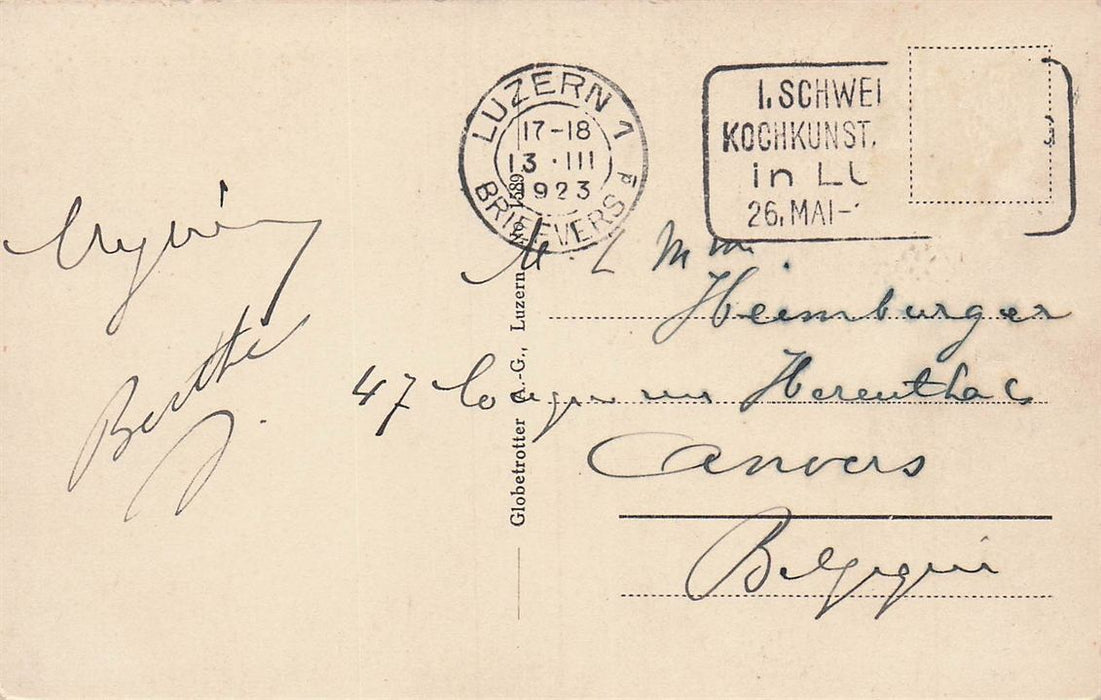 LUZERN 1
17-18
13 · III
1923
BRIEFVERS
I. SCHWEI
KOCHKUNST.
in LU
26. MAI-
M. & Mme
Heimburger
47 longue rue Herenthals
Anvers
Belgique
Berthe J.
Globetrotter A.-G., Luzern